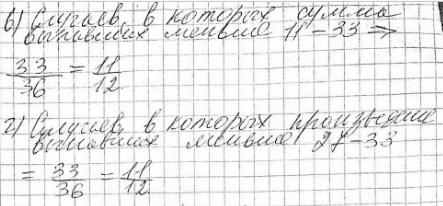 б) Случаев, в которых сумма
выпавших меньше 11 – 33 ⇒
33/36 = 11/12
г) Случаев, в которых произведение
выпавших меньше 27 – 33
= 33/36 = 11/12